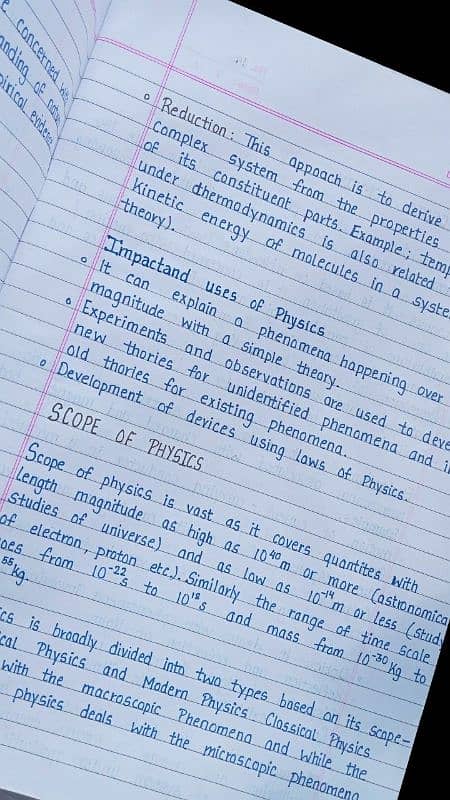 e concerned wi
anding of natu
pirical eviden
o Reduction: This appoach is to derive
Complex system from the properties
of its constituent parts. Example; temp
under thermodynamics is also related
Kinetic energy of molecules in a syste
theory).
Impactand uses of Physics
o It can explain a phenomena happening over
magnitude with a simple theory.
o Experiments and observations are used to deve
new thories for unidentified phenomena and i
old thories for existing phenomena.
o Development of devices using laws of Physics.
SCOPE OF PHYSICS
Scope of physics is vast as it covers quantites with
length magnitude as high as 10⁴⁰m or more (astionomica
studies of universe) and as low as 10⁻¹⁴m or less (stud
of electron, proton etc.). Similarly the range of time scale
oes from 10⁻²²s to 10¹⁸s and mass from 10⁻³⁰kg to
⁵⁵kg.
ics is broadly divided into two types based on its scope-
cal Physics and Modern Physics. Classical Physics
with the macroscopic Phenomena and while the
physics deals with the microscopic phenomena